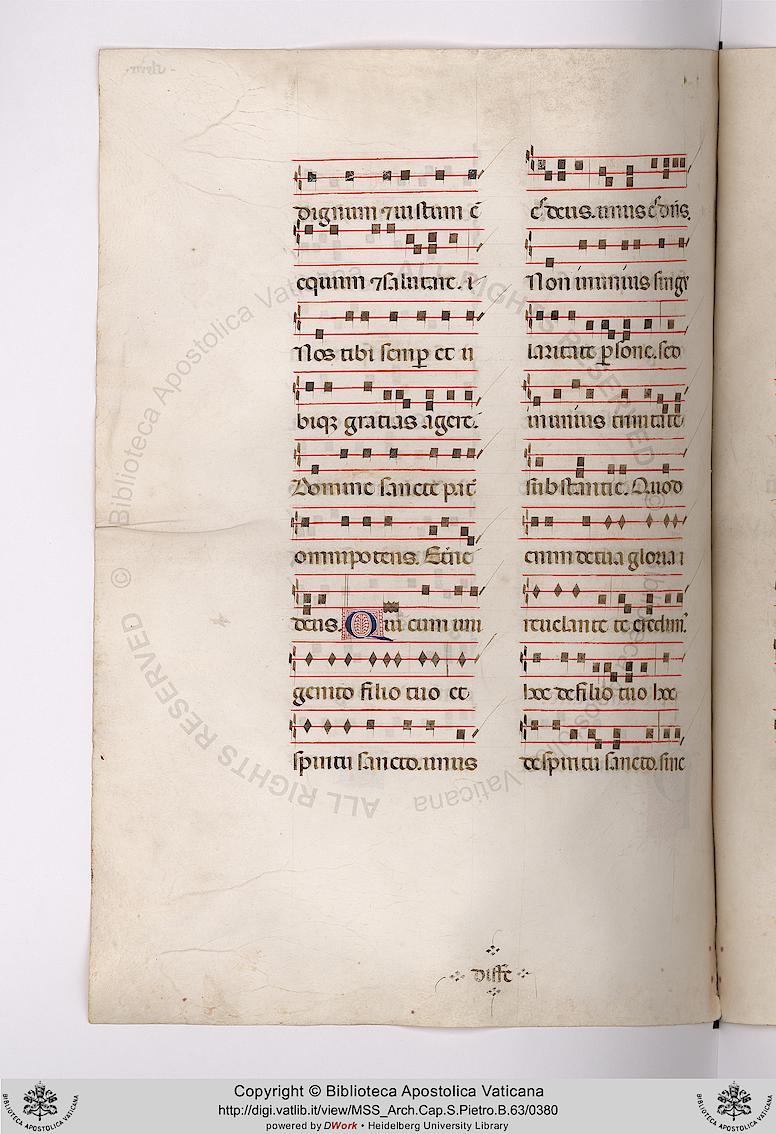 dignum ⁊ iustum ē
equum ⁊ salutare. ı
Nos tibi semꝑ et u
biqꝫ gratias agere.
Domine sancte pat̄
omnipotens. Et̄ne
deus. Qui cum uni
genito filio tuo et
spiritu sancto. unus
eˢ deus. unus eˢ dn̄s.
Non in unius singu
laritate ꝑsone. sed
in unius trinitate
substantie. Quod
enim de tua gloria ı
reuelante te credim᷒.
hoc de filio tuo hoc
de spiritu sancto. sine
diffē
Copyright © Biblioteca Apostolica Vaticana
http://digi.vatlib.it/view/MSS_Arch.Cap.S.Pietro.B.63/0380
powered by DWork • Heidelberg University Library
© Biblioteca Apostolica Vaticana ALL RIGHTS RESERVED
BIBLIOTECA APOSTOLICA VATICANA
BIBLIOTECA APOSTOLICA VATICANA